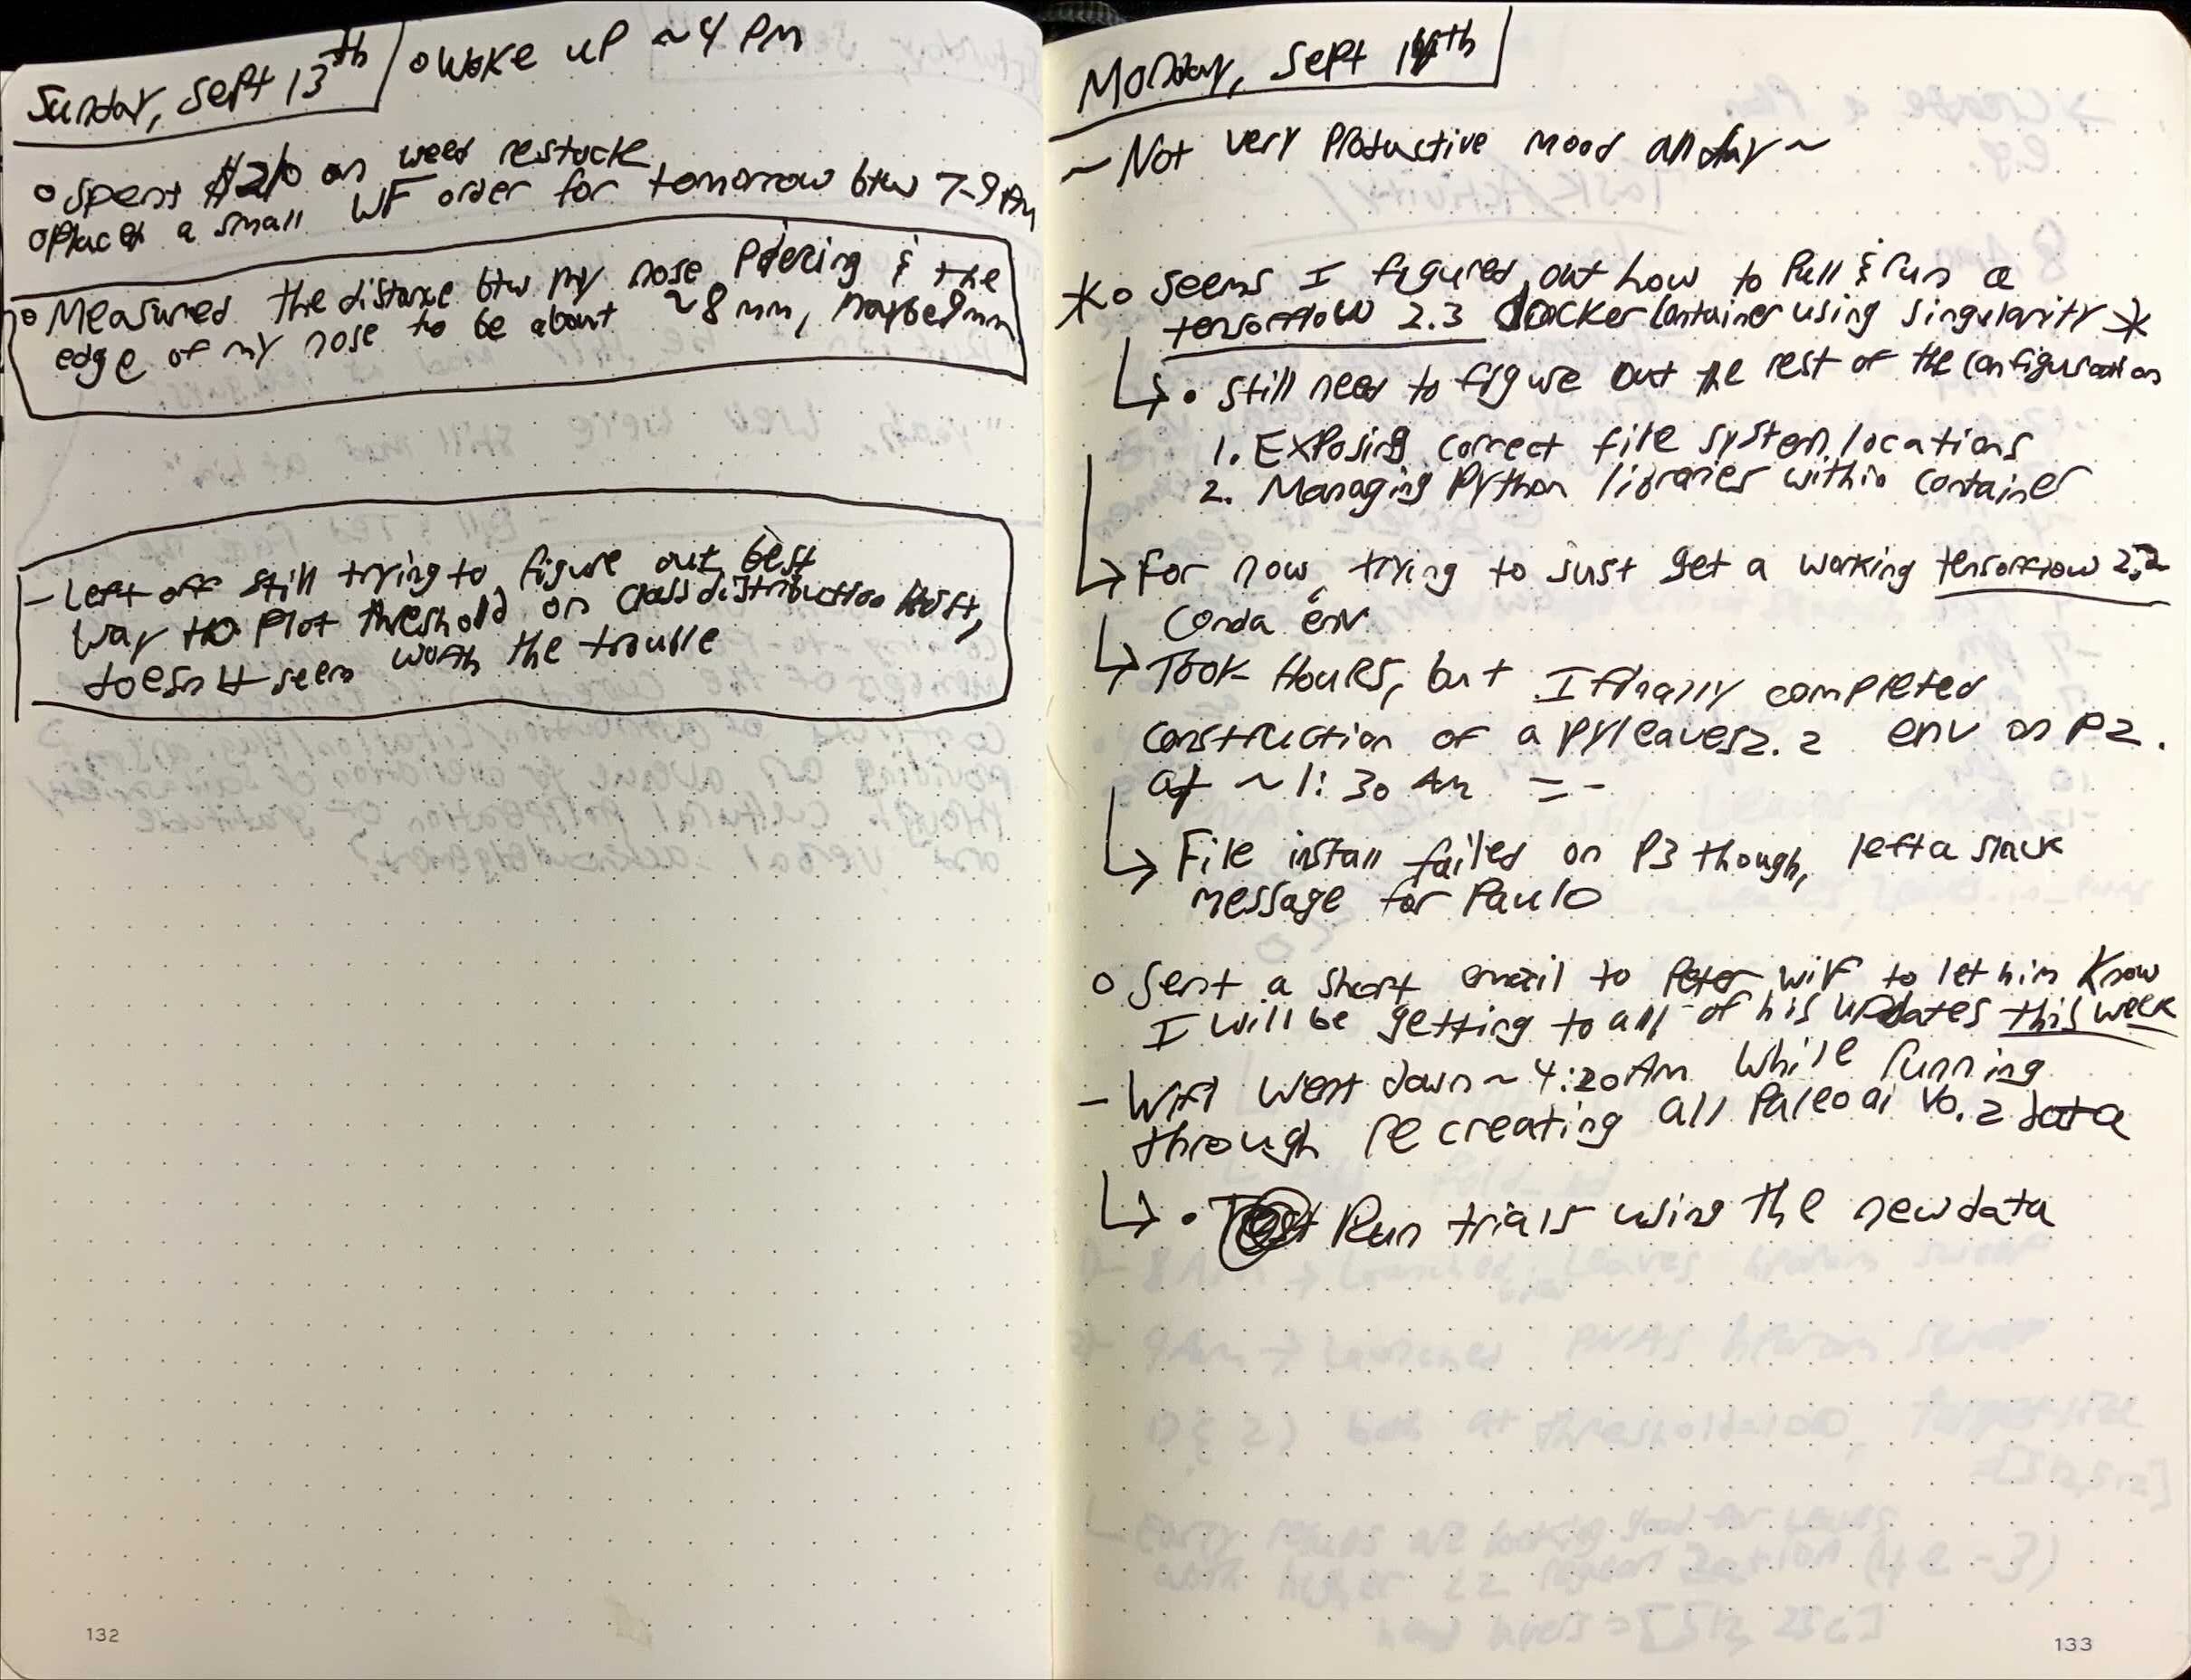 Sunday, Sept 13th
o Woke up ~4 PM
o Spent $210 on weed restock
o Placed a small WF order for tomorrow btw 7-9 AM
o Measured the distance btw my nose piercing & the
edge of my nose to be about ~8 mm, maybe 9mm
- Left off still trying to figure out best
way to plot threshold on class distribution hist,
doesn't seem worth the trouble
132
Monday, Sept 14th
~ Not very productive mood all day ~
* o Seems I figured out how to pull & run a
tensorflow 2.3 Docker Container using singularity *
↳ • Still need to figure out the rest of the configuration
1. Exposing correct file system locations
2. Managing Python libraries within container
↳ For now, trying to just get a working tensorflow 2.2
Conda env
↳ Took Hours, but I finally completed
construction of a pyleaves2.2 env on P2.
at ~1:30 AM = -
↳ File install failed on P3 though, left a slack
message for Paulo
o Sent a short email to Peter Wilf to let him know
I will be getting to all of his updates this week
- Wifi went down ~4:20AM while running
through recreating all Paleoai V0.2 data
↳ • Run trials using the new data
133